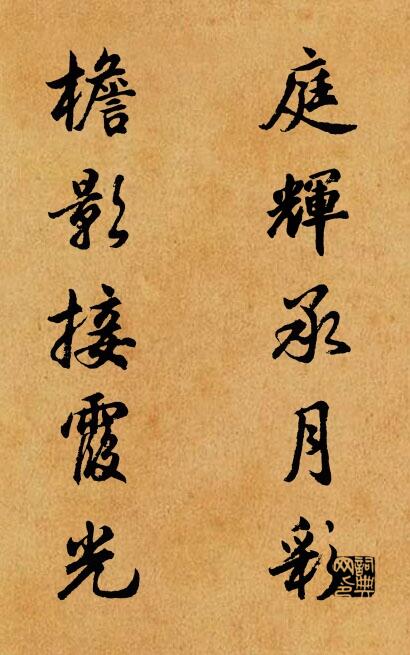 庭輝承月彩
檐影接霞光
詞典
网